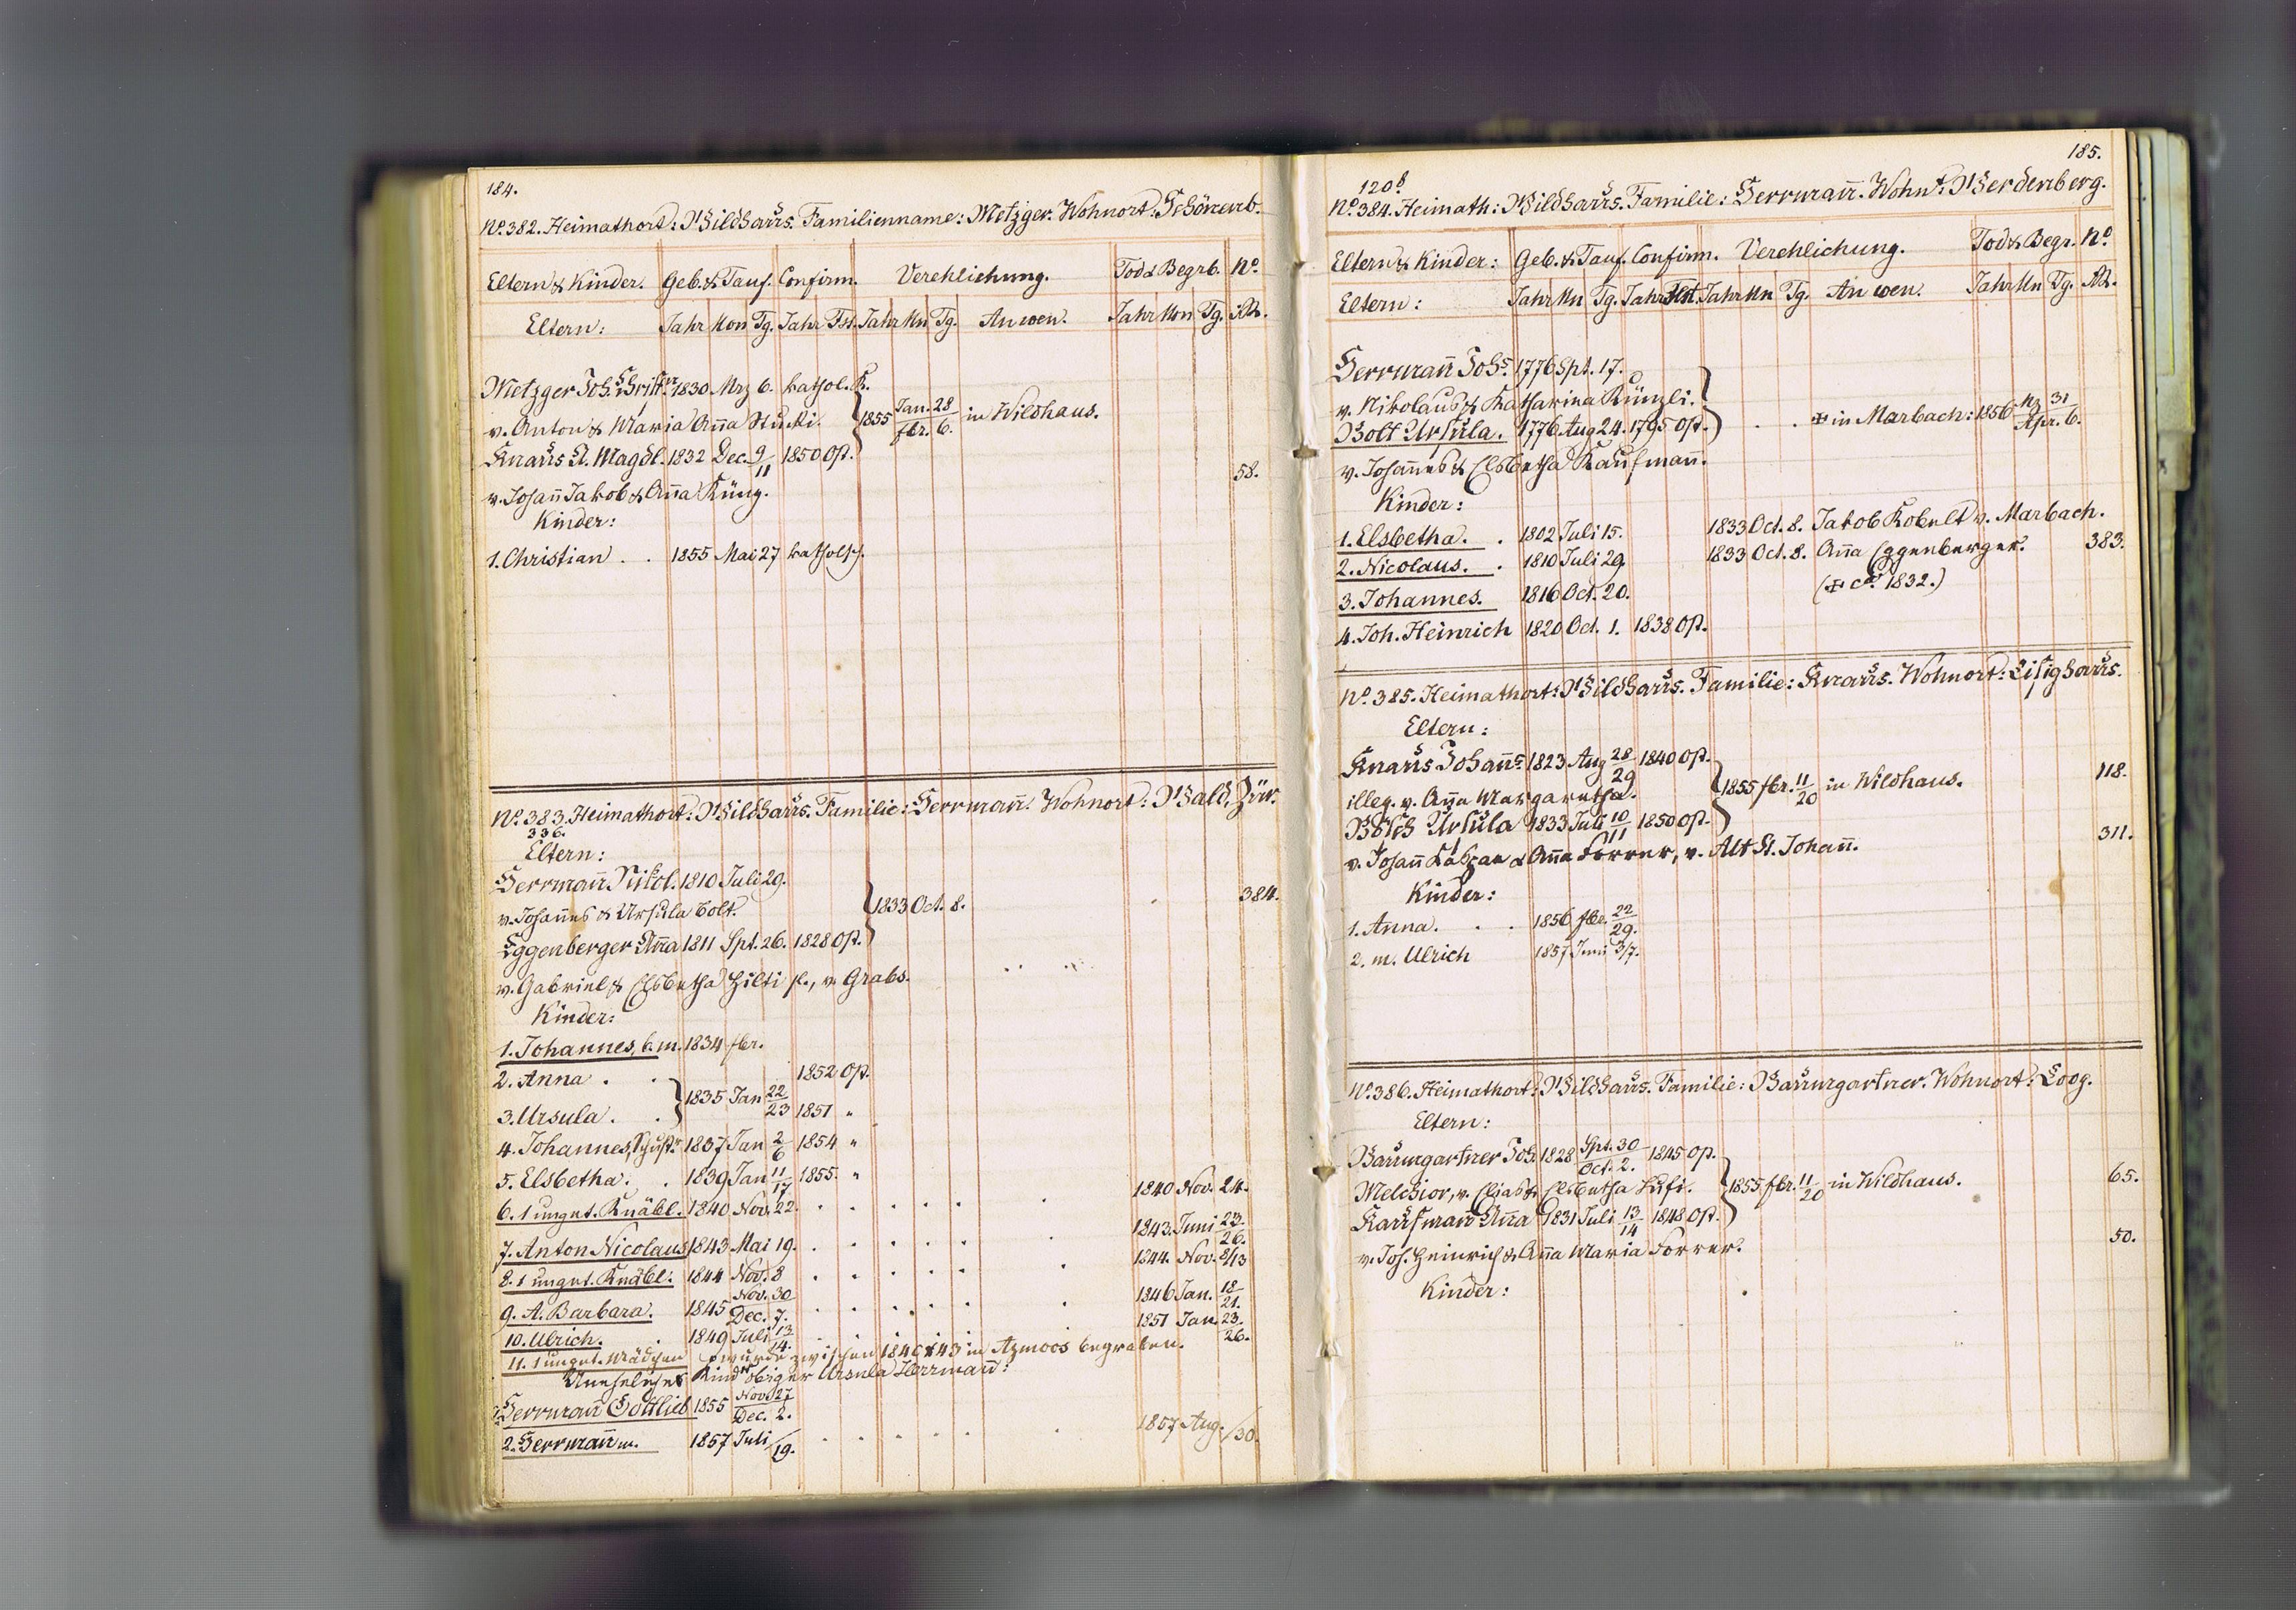 184.
No. 382. Heimathort: Wildhaus. Familienname: Metzger. Wohnort: Schönenb.
Eltern & Kinder. Geb. & Tauf. Confirm. Verehlichung. Tod & Begrb. No.
Eltern: Jahr Mon Tg. Jahr Fst. Jahr Mn Tg. An wen. Jahr Mon Tg. Rh.
Metzger Joh. Christn. 1830 Mrz 6. kathol. K.
v. Anton & Maria Anna Stucki. 1855 Jan. 28 / fbr. 6. in Wildhaus.
Knaus A. Magdl. 1832 Dec. 9/11 1850 Ost.
58.
v. Johann Jakob & Anna Küng.
Kinder:
1. Christian . . 1855 Mai 27 katholsch.
No. 383. Heimathort: Wildhaus. Familie: Herrmann. Wohnort: Wald, Zür.
336.
Eltern:
Herrmann Nikol. 1810 Juli 29.
v. Johannes & Ursula Bolt. 1833 Oct. 8. 384.
Eggenberger Anna 1811 Spt. 26. 1828 Ost.
v. Gabriel & Elsbetha Hilti sl., v. Grabs.
Kinder:
1. Johannes, b.m. 1834 fbr.
2. Anna . . 1852 Ost.
1835 Jan 22/23
3. Ursula . . 1851 "
4. Johannes, Schust. 1837 Jan 2/6 1854 "
5. Elsbetha. . 1839 Jan 11/17 1855. "
6. 1 unget. Knäbl. 1840 Nov. 22. . . . . . . 1840 Nov. 24.
7. Anton Nicolaus 1843 Mai 19. . . . . . . 1843. Juni 23/26.
8. 1 unget. Knäbl. 1844 Nov. 8 . . . . . . 1844. Nov. 8/13
9. A. Barbara. 1845 Nov. 30 / Dec. 7. . . . . . . 1846 Jan. 18/21.
10. Ulrich. . 1849 Juli 13/14. . . . . . . 1851 Jan. 23/26.
11. 1 unget. Mädchen wurde zwischen 1840 & 43 in Azmoos begraben.
Uneheliches Kind obiger Ursula Herrmann:
Herrmann Gottlieb 1855 Nov. 27 / Dec. 2.
2. Herrmann m. 1857 Juli /19. . . . . . . 1857 Aug. /30.
185.
120b.
No. 384. Heimath: Wildhaus. Familie: Herrmann. Wohnt: Werdenberg.
Eltern & Kinder: Geb. & Tauf. Confirm. Verehlichung. Tod & Begr. No.
Eltern: Jahr Mn Tg. Jahr Fst. Jahr Mn Tg. An wen. Jahr Mn Tg. Rh.
Herrmann Johs. 1776 Spt. 17.
v. Nikolaus & Katharina Künzli.
Bolt Ursula. 1776 Aug 24. 1795 Ost. . . in Marbach: 1856 Mz 31 / Apr. 6.
v. Johannes & Elsbetha Kaufmann.
Kinder:
1. Elsbetha. . 1802 Juli 15. 1833 Oct. 8. Jakob Kobelt v. Marbach.
2. Nicolaus. . 1810 Juli 29. 1833 Oct. 8. Anna Eggenberger. 383.
3. Johannes. 1816 Oct. 20. ( ca. 1832.)
4. Joh. Heinrich 1820 Oct. 1. 1838 Ost.
No. 385. Heimathort: Wildhaus. Familie: Knaus. Wohnort: Lisighaus.
Eltern:
Knaus Johans. 1823 Aug 28/29 1840 Ost.
illeg. v. Anna Margaretha. 1855 fbr. 11/20 in Wildhaus. 118.
Bösch Ursula 1833 Juli 10/11 1850 Ost.
v. Johann Kaspar & Anna Forrer, v. Alt St. Johann. 311.
Kinder:
1. Anna. . . 1856 fbr. 22/29.
2. m. Ulrich 1857 Juni 3/7.
No. 386. Heimathort: Wildhaus. Familie: Baumgartner. Wohnort: Loog.
Eltern:
Baumgartner Joh. 1828 Spt. 30 / Oct. 2. 1845 Ost.
Melchior, v. Elias & Elsbetha Huser. 1855 fbr. 11/20 in Wildhaus. 65.
Kaufmann Anna 1831 Juli 13/14 1848 Ost.
v. Joh. Heinrich & Anna Maria Forrer. 50.
Kinder: